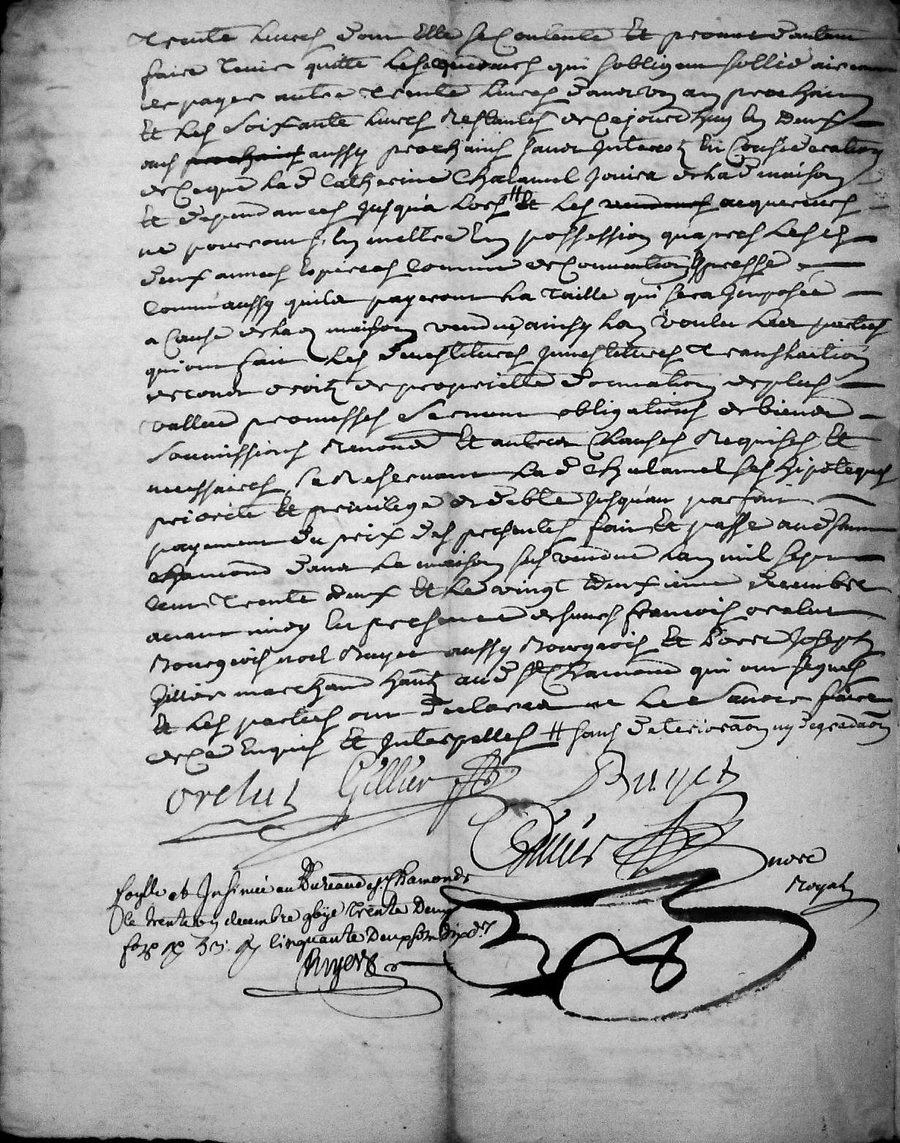 trente livres dont elle se contente et promet d'autant
faire tenir quitte les acquereurs qui sobligent sollidairement
de payer autre trente livres dans un an prochain
et les soixante livres restantes de cejourdhuy en deux
ans prochains aussy prochains sans interest en consideration
de ce que lad Catherine Chalamel jouira de lad maison
et dependances jusqu'a lors # et les acquereurs
ne pourront sen mettre en possession quapres lesd
deux années expirées comme de convention expresse
comm'aussy quils payeront la taille qui sera imposée
a cause de lad maison vendue ainsy lon voulu les parties
qui ont fait les devestitures investitures translation
de tout droit de proprietté donnation de plus
vallue promesses serment obligations de biens
soumissions renond et autres clauses requises et
necessaires se reservant lad Chalamel ses hipoteques
priorité et privilege jusqu'au parfait
payement du prix des presentes fait et passé aud saint
Chamond dans la maison sus vendue lan mil sept
cent trente deux et le vingt deuxieme decembre
avant midy en presence de sieurs francois orelut
Bourgeois noel Ruyet aussy Bourgeois et Joseph
Gillier marchand habit aud St Chamond qui ont signés
et les parties ont declaré ne le savoir faire
de ce enquis et interpellés # sans deterioraon ny degradaon
orelut Gillier Ruyet
nore
Royal
scellé et Insinué au Bureau de St Chamond
le trente un decembre trente deux
cinquante deux
Ruyet